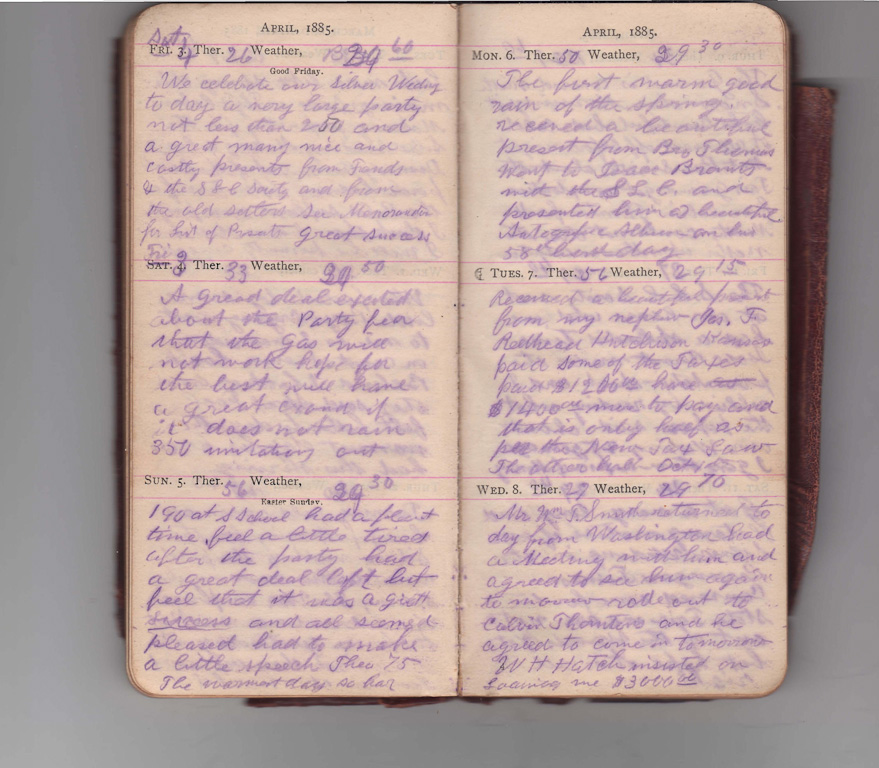 APRIL, 1885.
Sat. 4
FRI. 3. Ther. 26 Weather, 29 60
Good Friday.
We celebrate our silver Weding
to day a very large party
not less than 250 and
a great many nice and
costly presents from
& the S & C Society and from
the old settlers see Memoranda
for list of Presents great success
Fri 3
SAT. 4. Ther. 33 Weather, 50
A great deal excited
about the Party fear
that the Gas will
not work hope for
the best will have
a great crowd if
it does not rain
350 invitations out
SUN. 5. Ther. 56 Weather, 29 30
Easter Sunday.
190 at S School had a
time feel a little tired
after the party had
a great deal left but
feel that it was a
success and all seemed
pleased had to make
a little speech Ther 75
The warmest day so far
APRIL, 1885.
MON. 6. Ther. 50 Weather, 29 30
The first warm good
rain of the spring.
received a beautiful
present from Bro Thomas
went to Isaac
and
presented him a beautiful
on his
58th day
TUES. 7. Ther. 56 Weather, 29 15
Received a beautiful present
from my nephew Jos. F.
Redhead Hutchison Kansas
paid some of the Taxes
paid $1200 00 have
$1400 00 more to pay and
that is only half as
per the New Tax Law
The other half Oct 1
WED. 8. Ther. 27 Weather, 29 70
Mr Wm Smith returned to
day from Washington had
a Meeting with him and
agreed to see him again
to morrow rode out to
Calvin Thornton and he
agreed to come in tomorrow
W H Hatch insisted on
Loaning me $3000 00